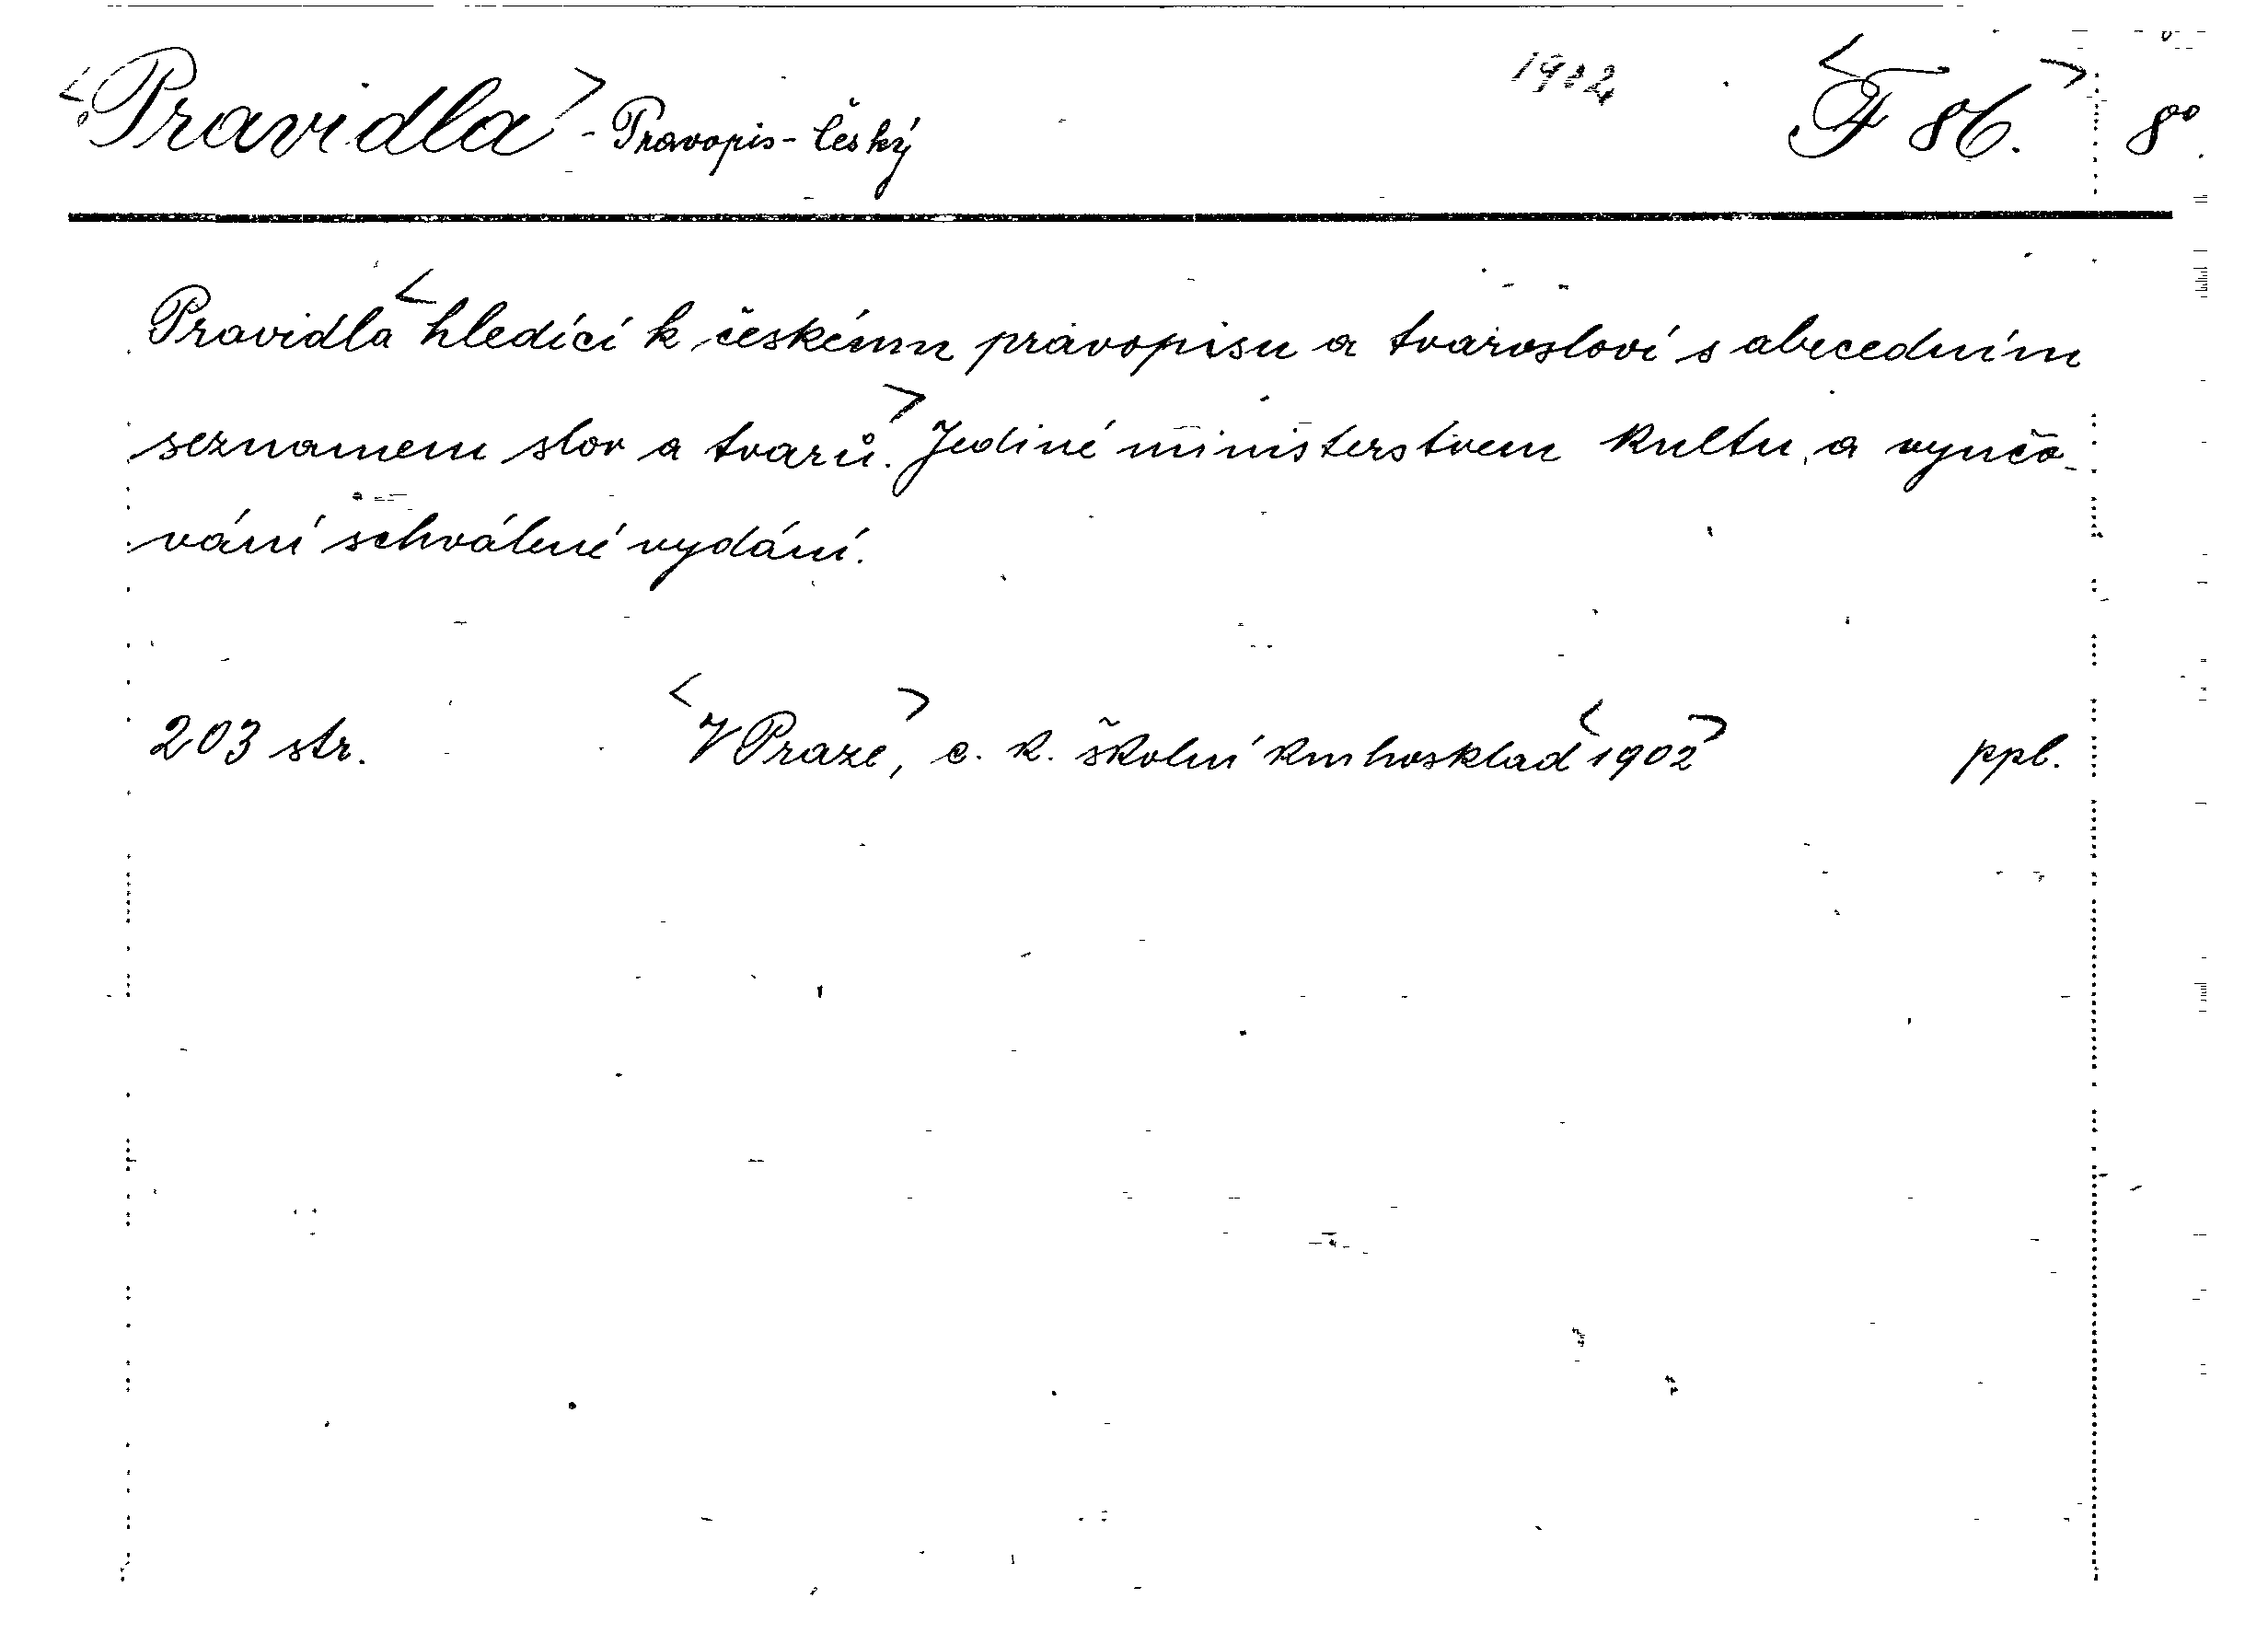 <Pravidla> - Pravopis - český 1902 <F 86.> 8°.
Pravidla <hledící k českému pravopisu a tvarosloví s abecedním
seznamem slov a tvarů.> Jediné ministerstvem kultu a vyučo-
vání schválené vydání.
203 str. <V Praze>, c. k. školní knihosklad <1902> ppl.